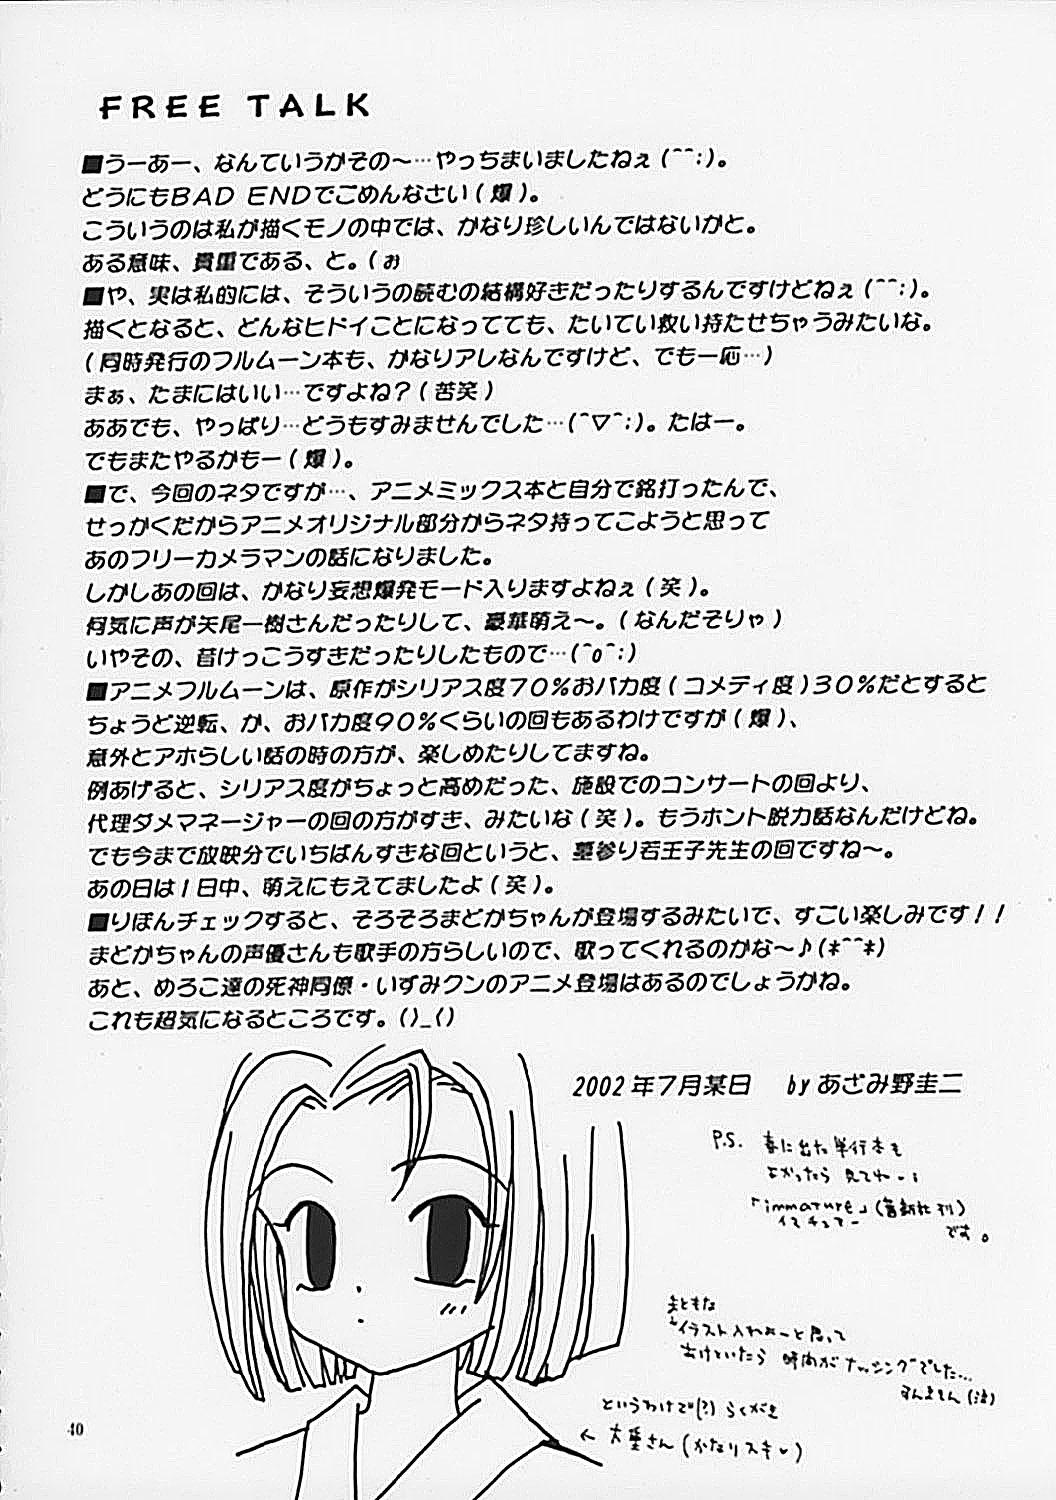 FREE TALK
■うーあー、なんていうかその～…やっちまいましたねぇ(^^;)。
どうにもBAD ENDでごめんなさい(爆)。
こういうのは私が描くモノの中では、かなり珍しいんではないかと。
ある意味、貴重である、と。(ぉ
■や、実は私的には、そういうの読むの結構好きだったりするんですけどねぇ(^^;)。
描くとなると、どんなヒドイことになってても、たいてい救い持たせちゃうみたいな。
(同時発行のフルムーン本も、かなりアレなんですけど、でも一応…)
まぁ、たまにはいい…ですよね?(苦笑)
ああでも、やっぱり…どうもすみませんでした…(^▽^;)。たはー。
でもまたやるかもー(爆)。
■で、今回のネタですが…、アニメミックス本と自分で銘打ったんで、
せっかくだからアニメオリジナル部分からネタ持ってこようと思って
あのフリーカメラマンの話になりました。
しかしあの回は、かなり妄想爆発モード入りますよねぇ(笑)。
何気に声が矢尾一樹さんだったりして、豪華萌え～。(なんだそりゃ)
いやその、昔けっこうすきだったりしたもので…(^o^;)
■アニメフルムーンは、原作がシリアス度70%おバカ度(コメディ度)30%だとすると
ちょうど逆転、か、おバカ度90%くらいの回もあるわけですが(爆)、
意外とアホらしい話の時の方が、楽しめたりしてますね。
例あげると、シリアス度がちょっと高めだった、施設でのコンサートの回より、
代理ダメマネージャーの回の方がすき、みたいな(笑)。もうホント脱力話なんだけどね。
でも今まで放映分でいちばんすきな回というと、墓参り若王子先生の回ですね～。
あの日は1日中、萌えにもえてましたよ(笑)。
■りぼんチェックすると、そろそろまどかちゃんが登場するみたいで、すごい楽しみです!!
まどかちゃんの声優さんも歌手の方らしいので、歌ってくれるのかな～♪(*^^*)
あと、めろこ達の死神同僚・いずみクンのアニメ登場はあるのでしょうかね。
これも超気になるところです。()_()
2002年7月某日 byあざみ野圭二
P.S. 春に出た単行本も
よかったら 見てねー!
「immature」(蒼新社刊)
イマチュアー
です。
まともな
イラスト入れよーと思って
あけといたら 時間がナッシングでした…
すんません(泣)
というわけで(?) らくがき
← 大重さん(かなりスキ♥)
40